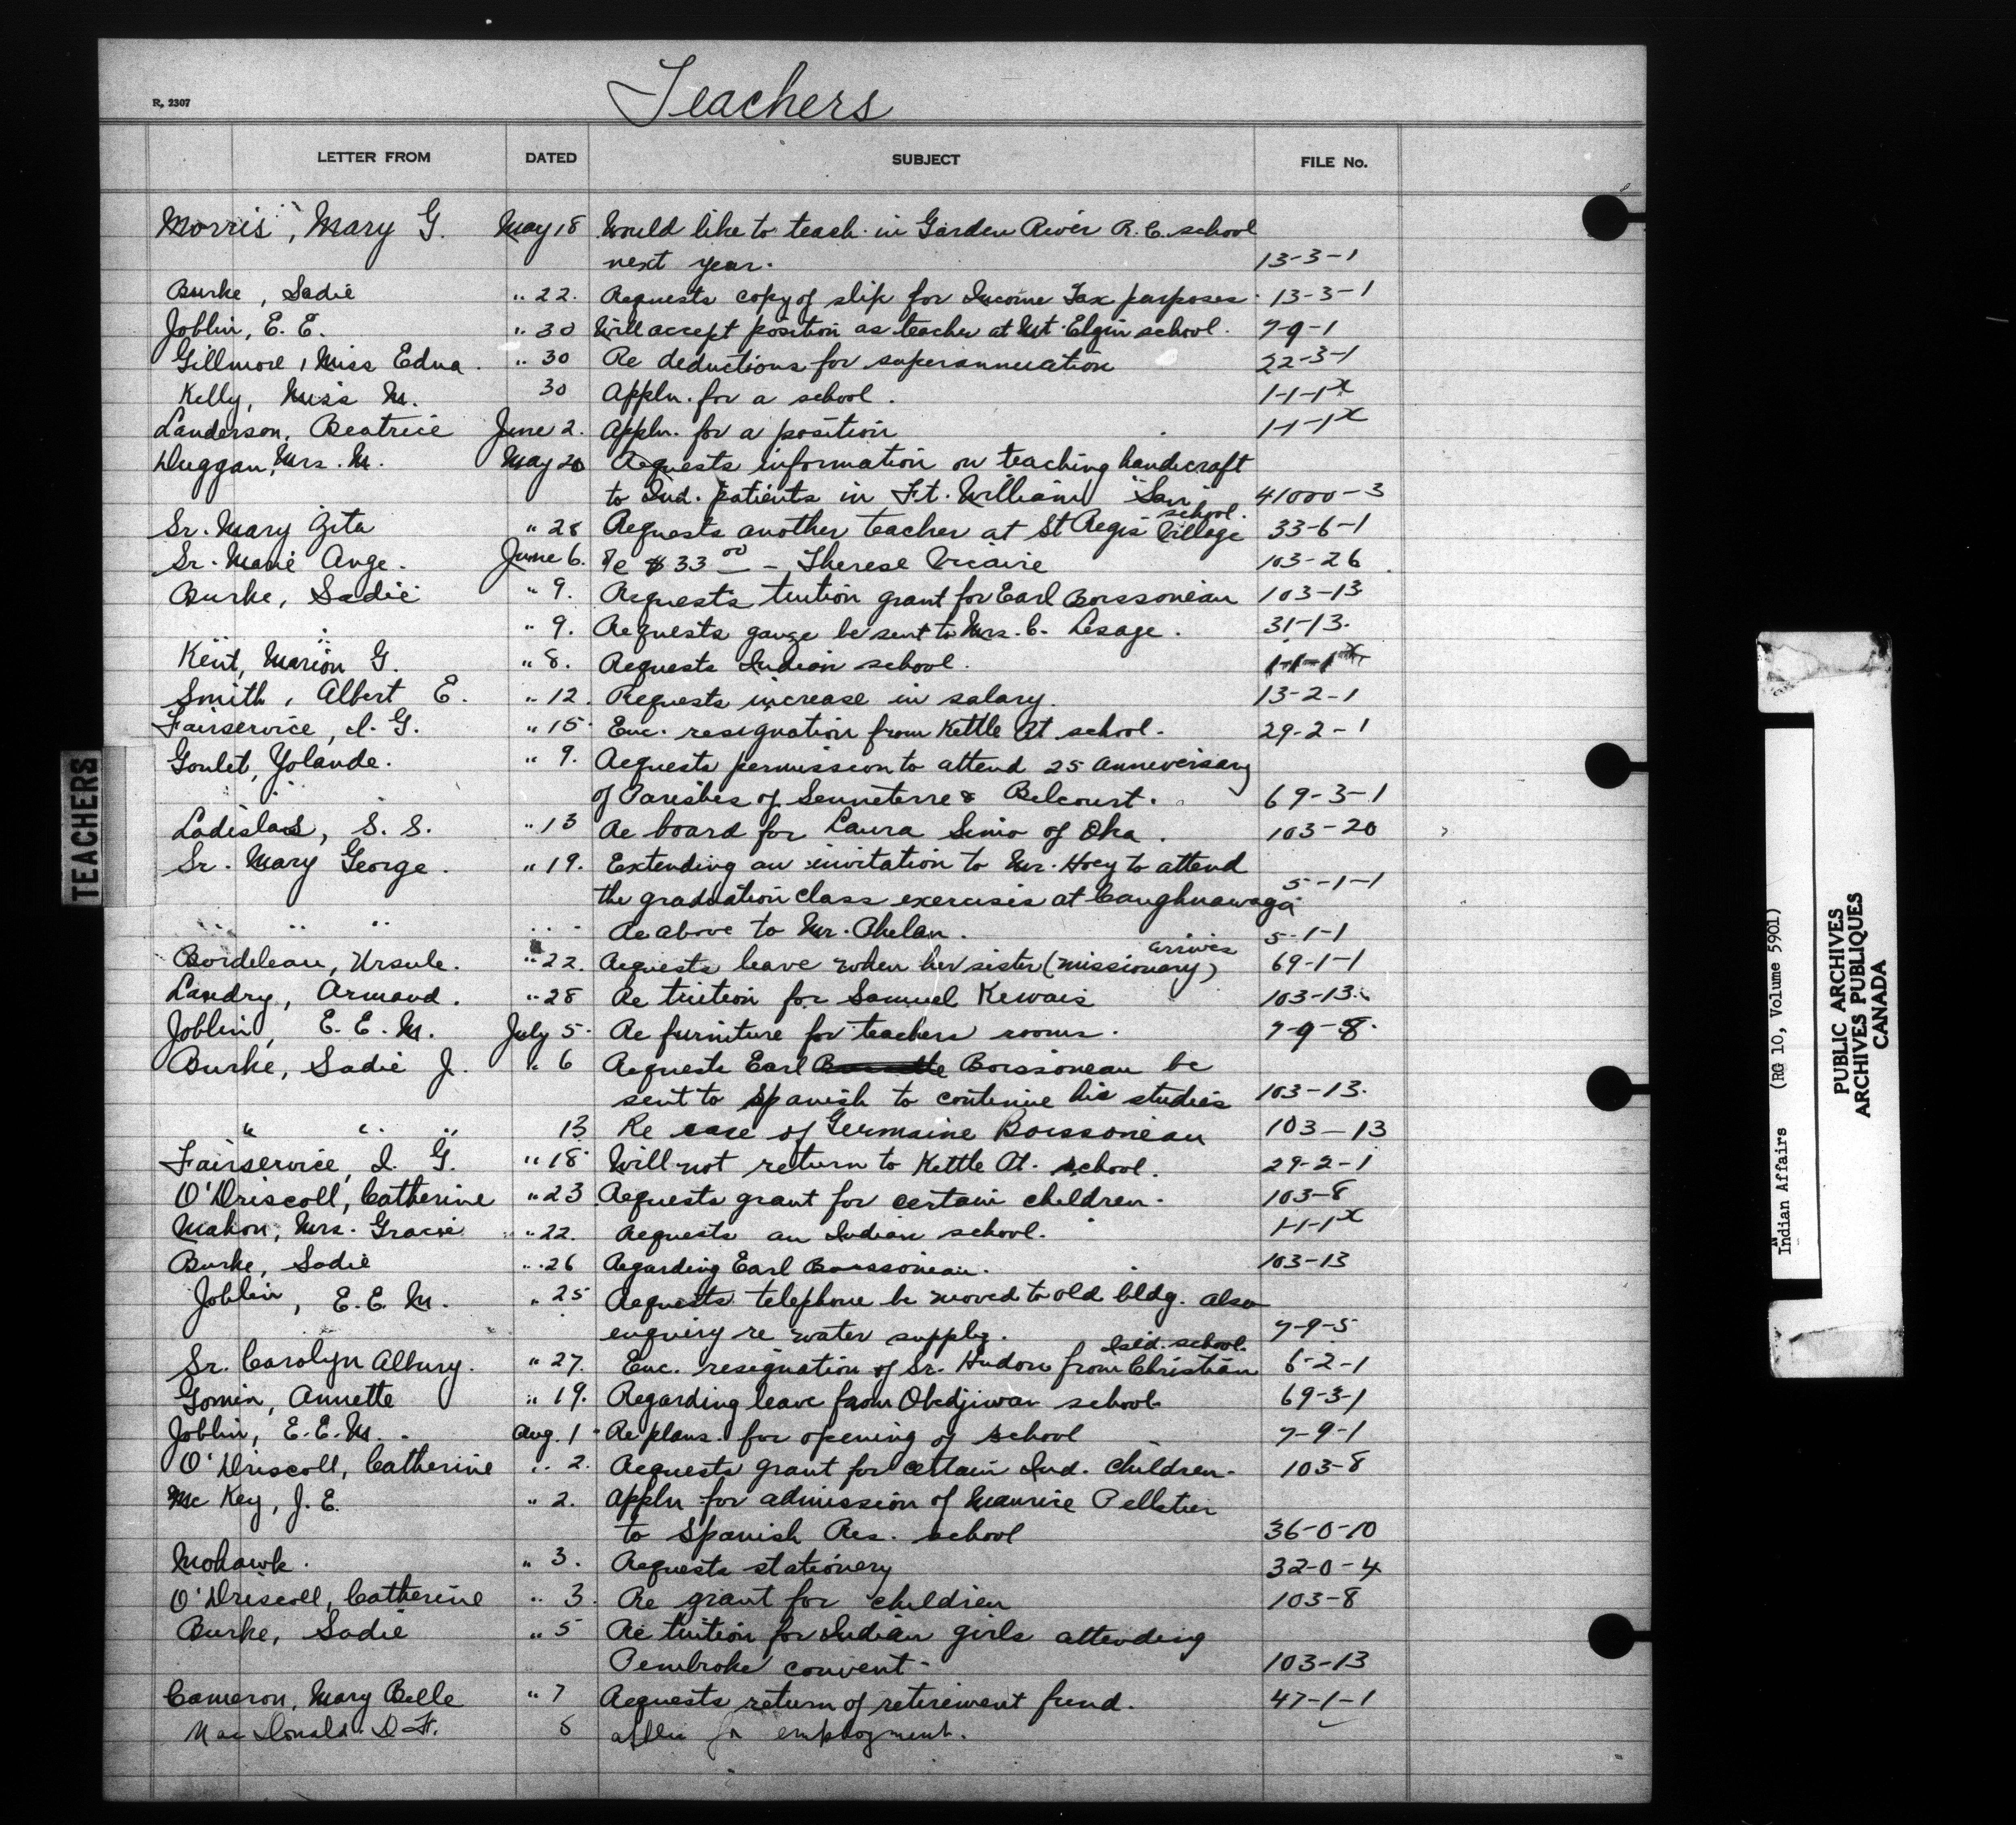 Teachers
R. 2307
LETTER FROM DATED SUBJECT FILE No.
Morris, Mary G. May 18 Would like to teach in Garden River R.C. school
next year. 13-3-1
Burke, Sadie " 22. Requests copy of slip for Income Tax purposes. 13-3-1
Joblin, E. E. " 30 Will accept position as teacher at Mt. Elgin school. 7-9-1
Gillmore, Miss Edna. " 30 Re deductions for superannuation 22-3-1
Kelly, Miss M. 30 Appln. for a school. 1-1-1x
Landerson, Beatrice June 2. Appln. for a position 1-1-1x
Duggan, Mrs. M. May 20 Requests information on teaching handicraft
to Ind. patients in Ft. William "San" 41000-3
school.
Sr. Mary Zita " 28 Requests another teacher at St Regis Village 33-6-1
Sr. Marie Ange. June 6. Re $33 00 - Therese Vicaire 103-26
Burke, Sadie " 9. Requests tuition grant for Earl Boissoneau 103-13
" " " 9. Requests gauze be sent to Mrs. C. Lesage. 31-13.
Kent, Marion G. " 8. Requests Indian school. 1-1-1x
Smith, Albert E. " 12. Requests increase in salary. 13-2-1
Fairservice, I. G. " 15. Enc. resignation from Kettle Pt school. 29-2-1
Goulet, Yolande. " 9. Requests permission to attend 25 anniversary
of Parishes of Senneterre & Belcourt. 69-3-1
Ladislas, S. S. " 13 Re board for Laura Simo of Oka. 103-20
Sr. Mary George. " 19. Extending an invitation to Mr. Hoey to attend
the graduation class exercises at Caughnawaga 5-1-1
" " " " " Re above to Mr. Phelan. 5-1-1
arrives
Bordeleau, Ursule. " 22. Requests leave when her sister (missionary) 69-1-1
Landry, Armand. " 28 Re tuition for Samuel Kewais 103-13.
Joblin, E. E. M. July 5. Re furniture for teachers rooms. 7-9-8.
Burke, Sadie J. " 6 Requests Earl Boissoneau be
sent to Spanish to continue his studies 103-13.
" " " 13 Re case of Germaine Boissoneau 103-13
Fairservice, I. G. " 18 Will not return to Kettle Pt. school. 29-2-1
O'Driscoll, Catherine " 23 Requests grant for certain children. 103-8
Mahon, Mrs. Gracie " 22. Requests an Indian school. 1-1-1x
Burke, Sadie " 26 Regarding Earl Boissoneau. 103-13
Joblin, E. E. M. " 25 Requests telephone be moved to old bldg. also
enquiry re water supply. 7-9-5
Isld. school.
Sr. Carolyn Albury. " 27. Enc. resignation of Sr. Hudon from Christian 6-2-1
Gomin, Annette " 19. Regarding leave from Obedjiwan school 69-3-1
Joblin, E. E. M. Aug. 1 Re plans for opening of school 7-9-1
O'Driscoll, Catherine " 2. Requests grant for certain Ind. children. 103-8
McKey, J. E. " 2. Appln for admission of Maurice Pelletier
to Spanish Res. school 36-0-10
Mohawk. " 3. Requests stationery 32-0-4
O'Driscoll, Catherine " 3. Re grant for children 103-8
Burke, Sadie " 5 Re tuition for Indian girls attending
Pembroke convent. 103-13
Cameron, Mary Belle " 7 Requests return of retirement fund. 47-1-1
MacDonald. D. F. 8 applic for employment.
TEACHERS
Indian Affairs (RG 10, Volume 5901)
PUBLIC ARCHIVES
ARCHIVES PUBLIQUES
CANADA